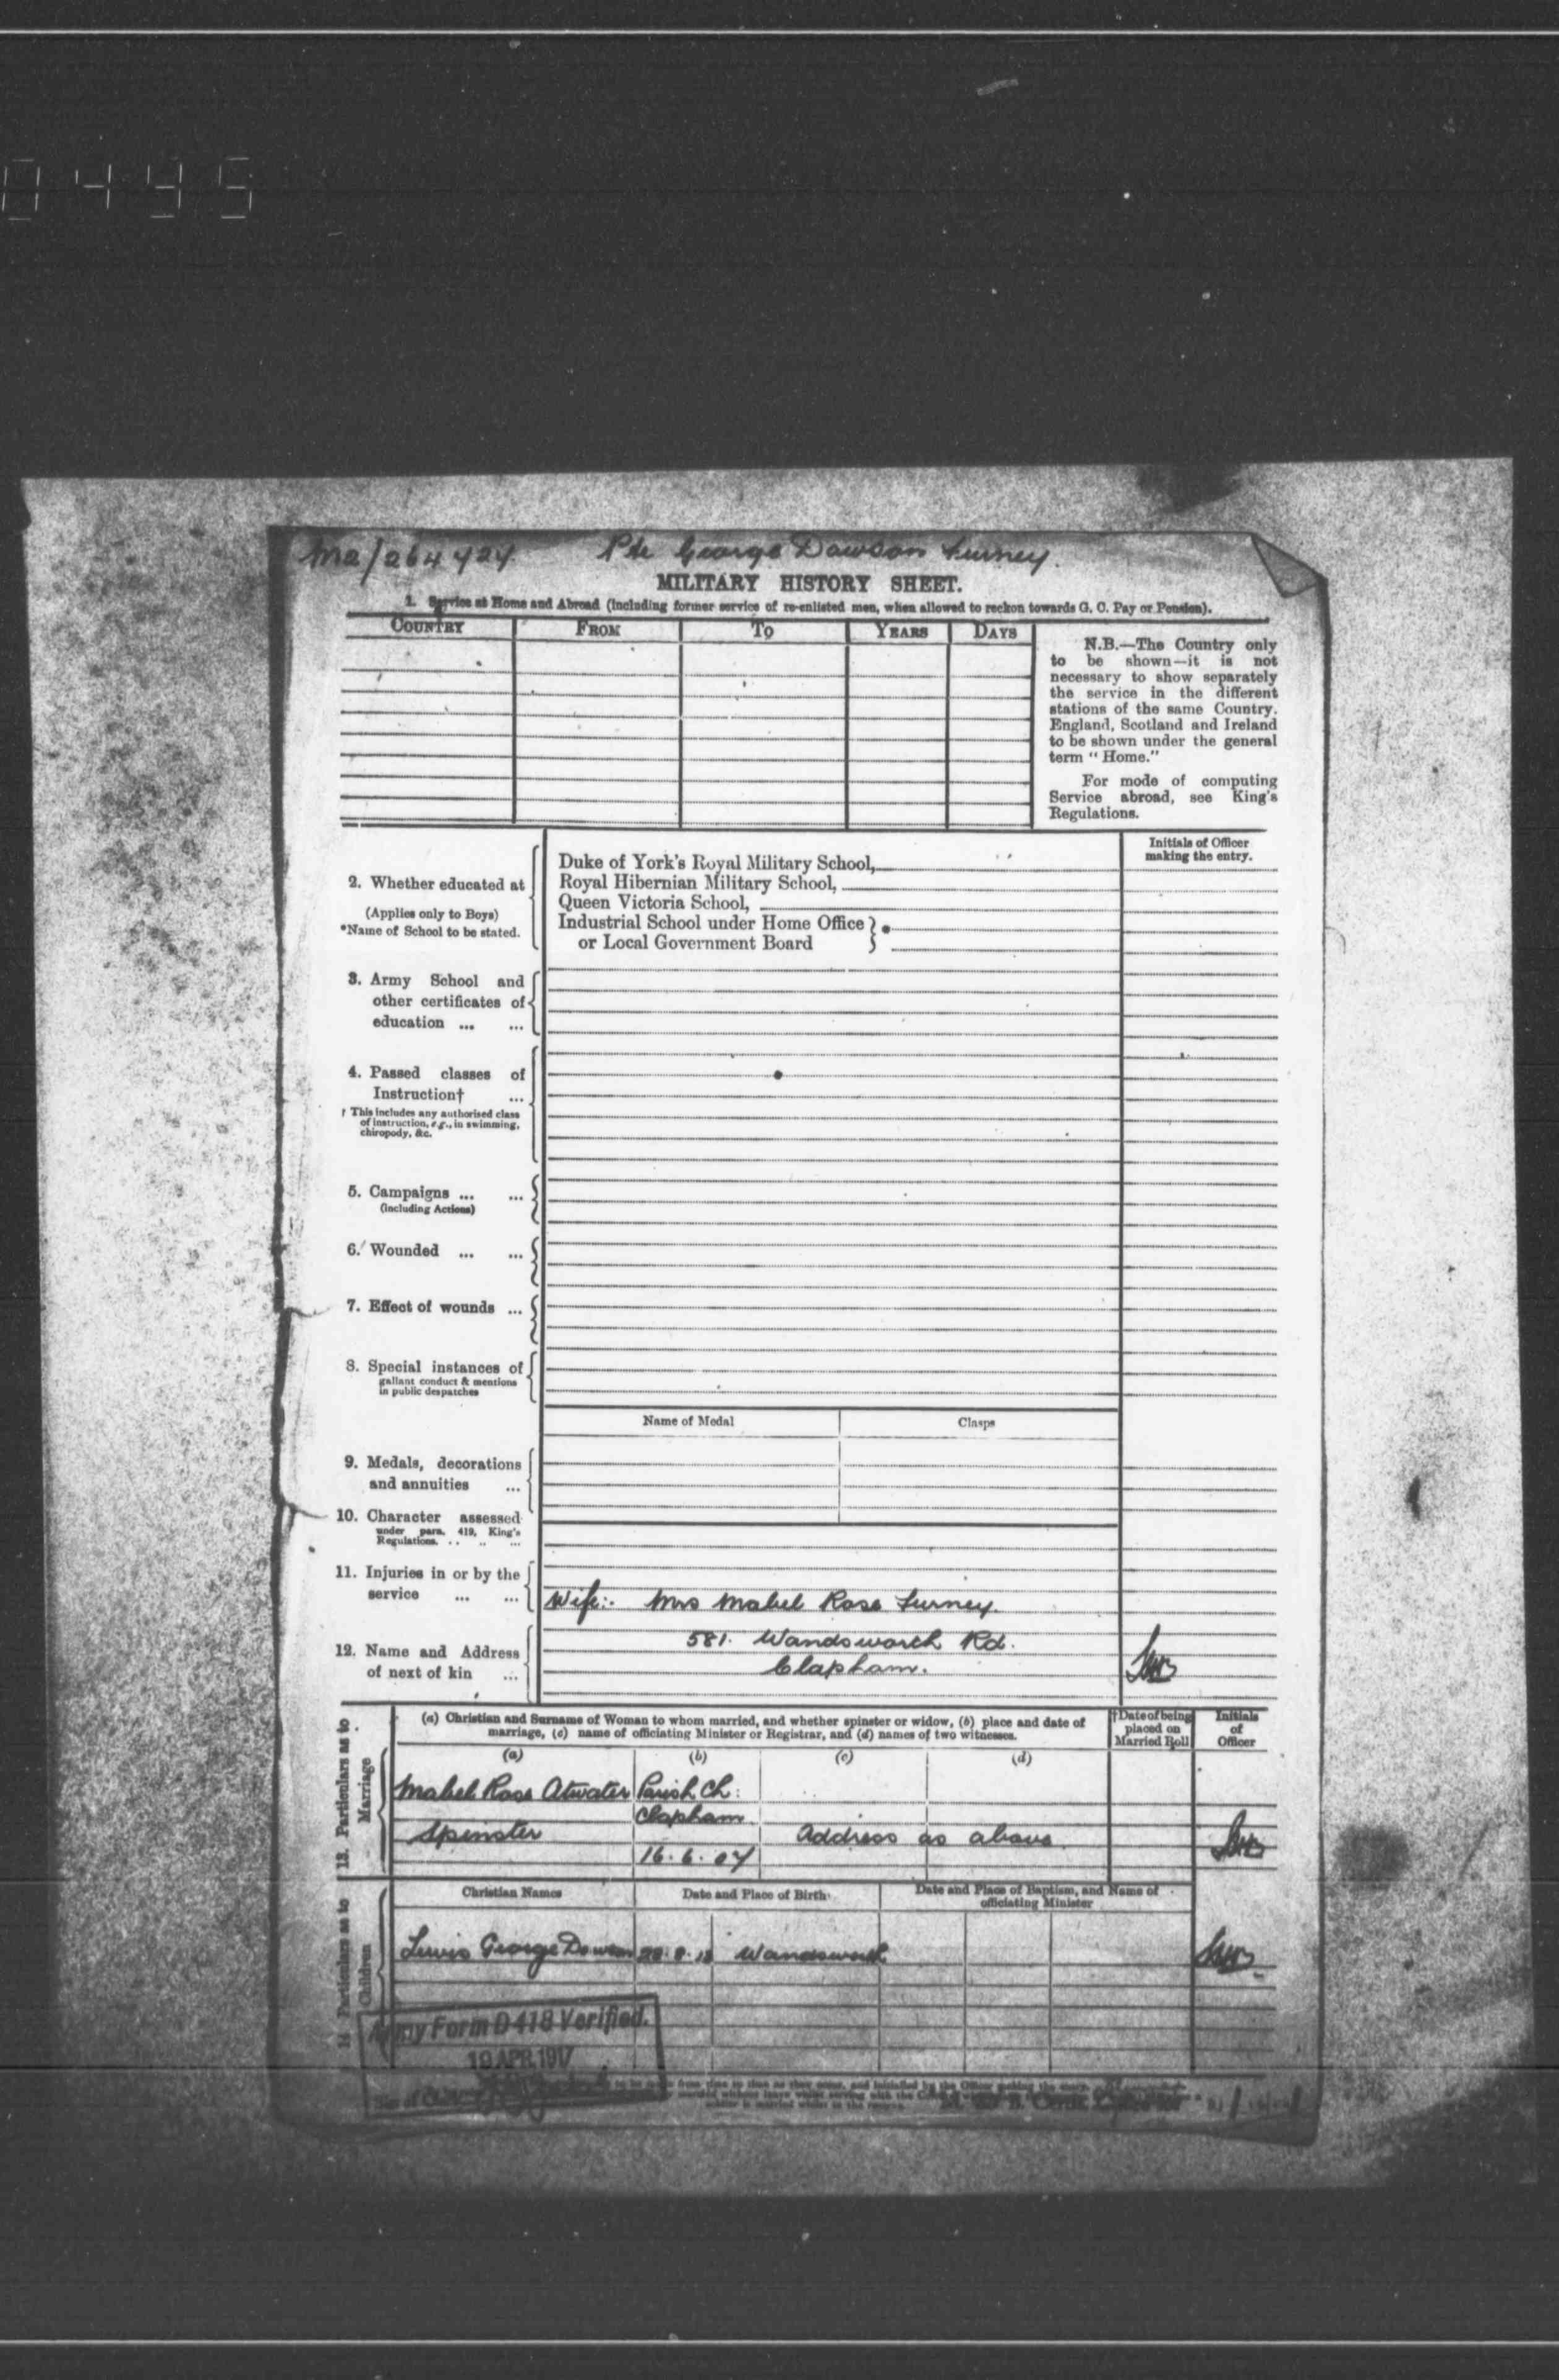 0445
M2/264424. Pte George Dawson Turney.
MILITARY HISTORY SHEET.
1. Service at Home and Abroad (including former service of re-enlisted men, when allowed to reckon towards G. C. Pay or Pension).
COUNTRY FROM TO YEARS DAYS
N.B.—The Country only
to be shown—it is not
necessary to show separately
the service in the different
stations of the same Country.
England, Scotland and Ireland
to be shown under the general
term "Home."
For mode of computing
Service abroad, see King's
Regulations.
Initials of Officer
making the entry.
2. Whether educated at
(Applies only to Boys)
*Name of School to be stated.
Duke of York's Royal Military School,
Royal Hibernian Military School,
Queen Victoria School,
Industrial School under Home Office
or Local Government Board
3. Army School and
other certificates of
education ... ...
4. Passed classes of
Instruction† ...
† This includes any authorised class
of instruction, e.g., in swimming,
chiropody, &c.
5. Campaigns ... ...
(including Actions)
6. Wounded ... ...
7. Effect of wounds ...
8. Special instances of
gallant conduct & mentions
in public despatches
Name of Medal Clasps
9. Medals, decorations
and annuities ...
10. Character assessed
under para. 419, King's
Regulations. .. .. ...
11. Injuries in or by the
service ... ...
Wife:- Mrs Mabel Rose Turney.
12. Name and Address
of next of kin ...
581. Wandsworth Rd.
Clapham.
13. Particulars as to
Marriage
(a) Christian and Surname of Woman to whom married, and whether spinster or widow, (b) place and date of
marriage, (c) name of officiating Minister or Registrar, and (d) names of two witnesses.
†Date of being
placed on
Married Roll
Initials
of
Officer
(a) (b) (c) (d)
Mabel Rose Atwater Parish Ch:
Clapham
Spinster Address as above
16.6.07
14 Particulars as to
Children
Christian Names Date and Place of Birth Date and Place of Baptism, and Name of
officiating Minister
Lewis George Dawson 28.8.13 Wandsworth
Army Form D 418 Verified.
19 APR 1917